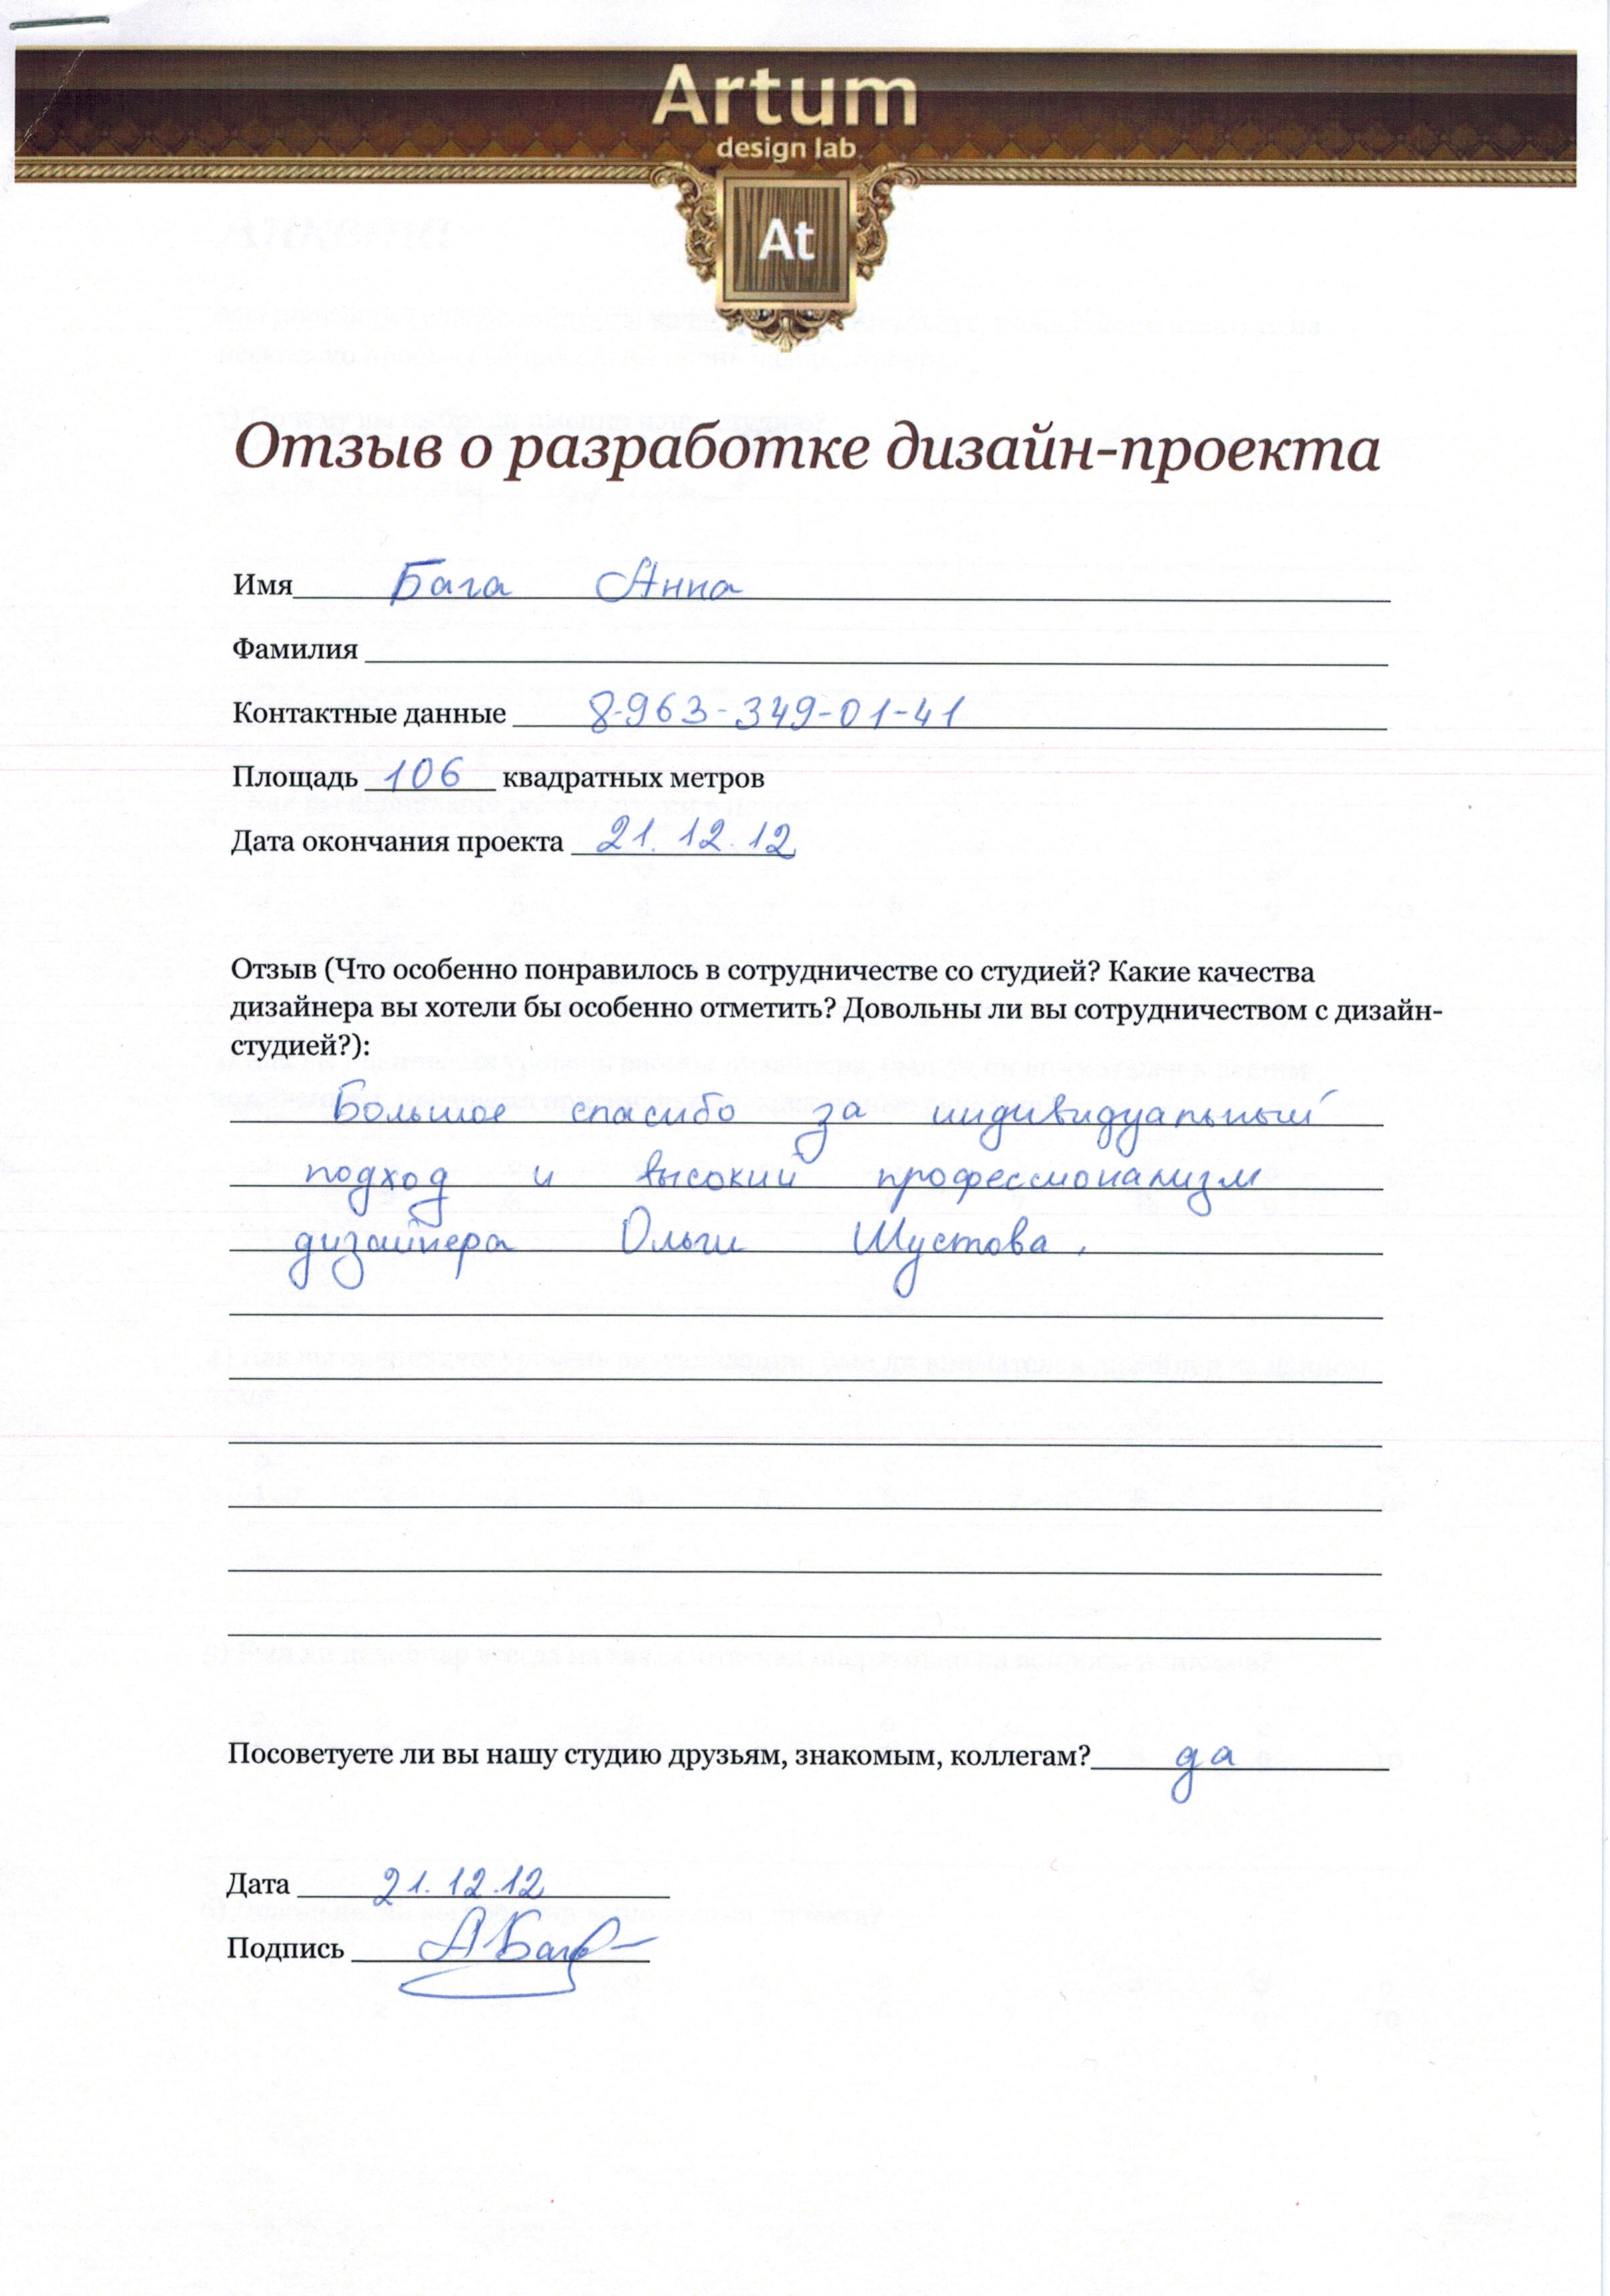 Artum
design lab
At
Отзыв о разработке дизайн-проекта
Имя Бага Анна
Фамилия
Контактные данные 8-963-349-01-41
Площадь 106 квадратных метров
Дата окончания проекта 21.12.12
Отзыв (Что особенно понравилось в сотрудничестве со студией? Какие качества
дизайнера вы хотели бы особенно отметить? Довольны ли вы сотрудничеством с дизайн-
студией?):
Большое спасибо за индивидуальный
подход и высокий профессионализм
дизайнера Ольги Шустова.
Посоветуете ли вы нашу студию друзьям, знакомым, коллегам? да
Дата 21.12.12
Подпись АБага